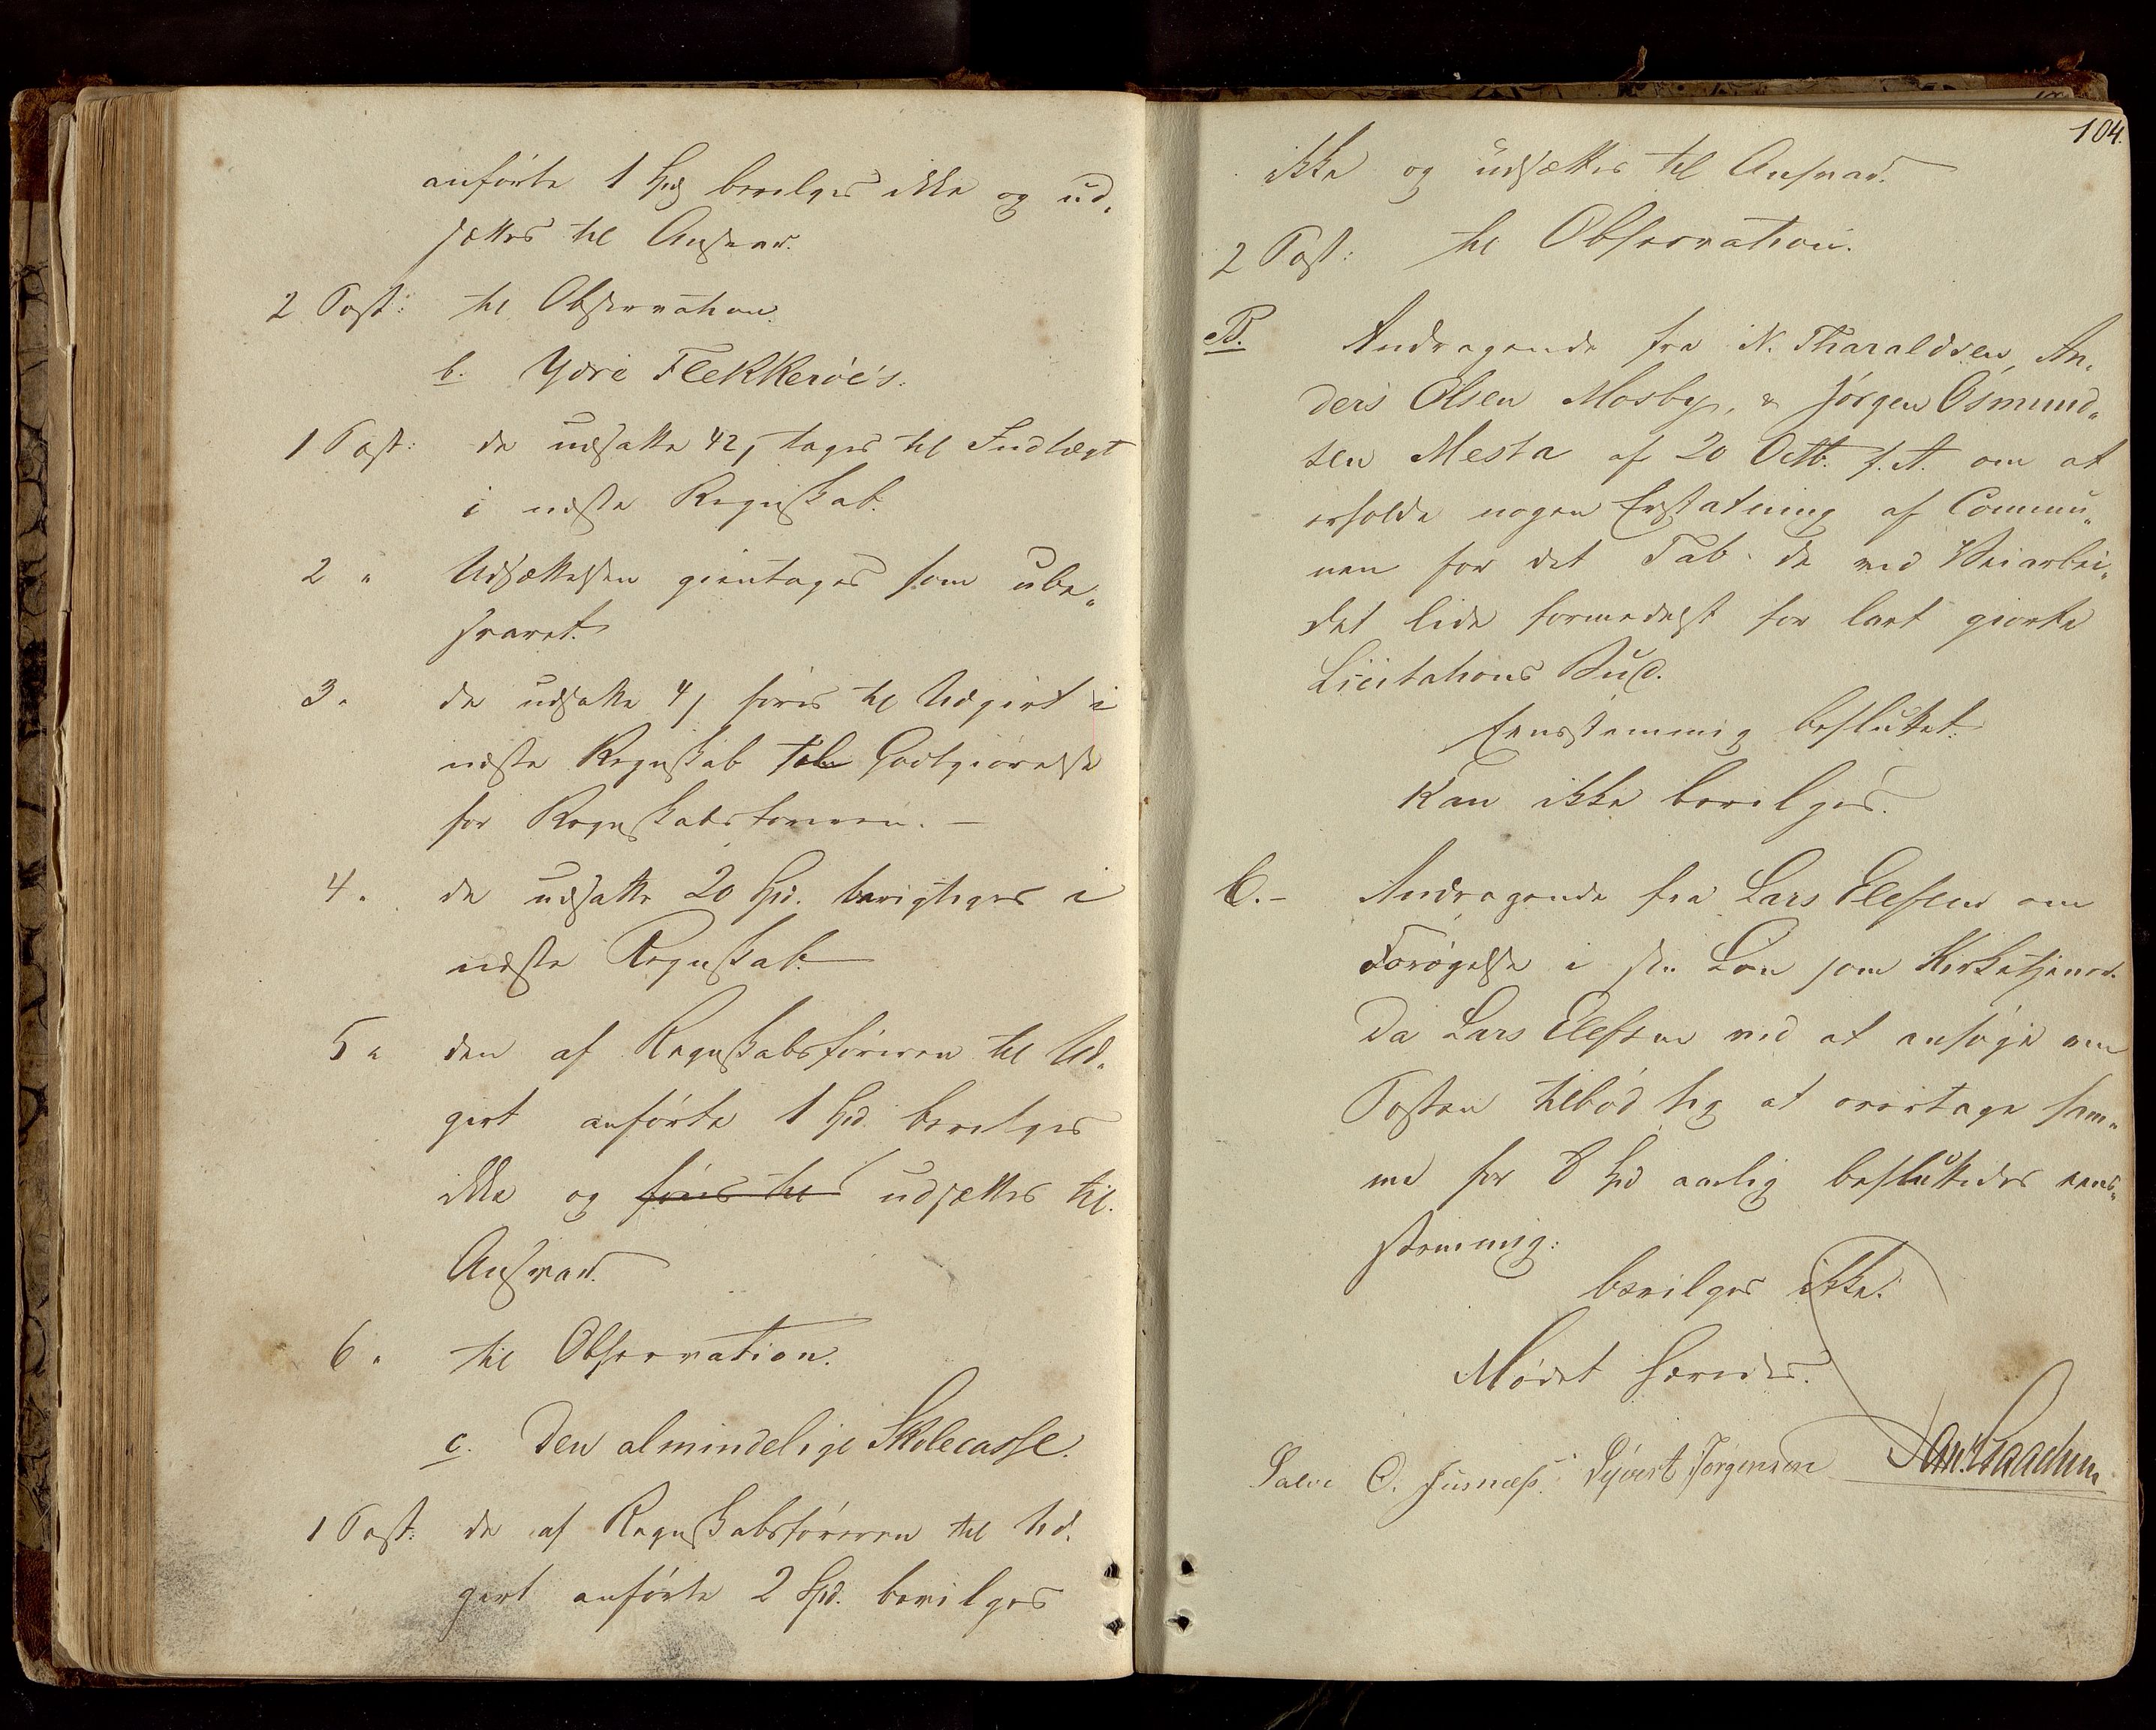 anförte 1 Spd bevilges ikke og ud„
sættes til Ansvar.
2 Post: til Observation.
b. Ydre Flekkeröe's.
1 Post: de udsatte 42 tages til Indtægt
i næste Regnskab.
2 " Udsættelsen gientages som ube„
svaret.
3 " de udsatte 4 föres til Udgivt i
næste Regnskab til Godtgiörelse
for Regnskabsföreren. —
4 " de udsatte 20 Spd. berigtiges i
næste Regnskab.
5 " den af Regnskabsföreren til Ud„
givt anförte 1 Spd. bevilges
ikke og föres til udsættes til
Ansvar.
6 " til Observation.
c. Den almindelige Skolecasse.
1 Post: de af Regnskabsföreren til Ud„
givt anförte 2 Spd. bevilges
104.
ikke og udsættes til Ansvar.
2 Post: til Observation.
B. Andragende fra N. Tharaldsen, An„
ders Olsen Mosby, & Jörgen Osmund„
sen Mesta af 20 Octb. f. A. om at
erholde nogen Erstatning af Commu„
nen for det Tab de ved Veiarbei„
det lide formedelst for lavt giorte
Licitations Bud.
Eenstemmig besluttet:
Kan ikke bevilges.
C. - Andragende fra Lars Elefsen om
Forögelse i sin Lön som Kirketjener.
Da Lars Elefsen ved at ansöge om
Posten tilböd sig at overtage sam„
me for 8 Spd aarlig besluttedes eens„
stemmig:
bevilges ikke.
Mödet hævedes.
Salve O. Jusnæs. Syvert Jörgensen